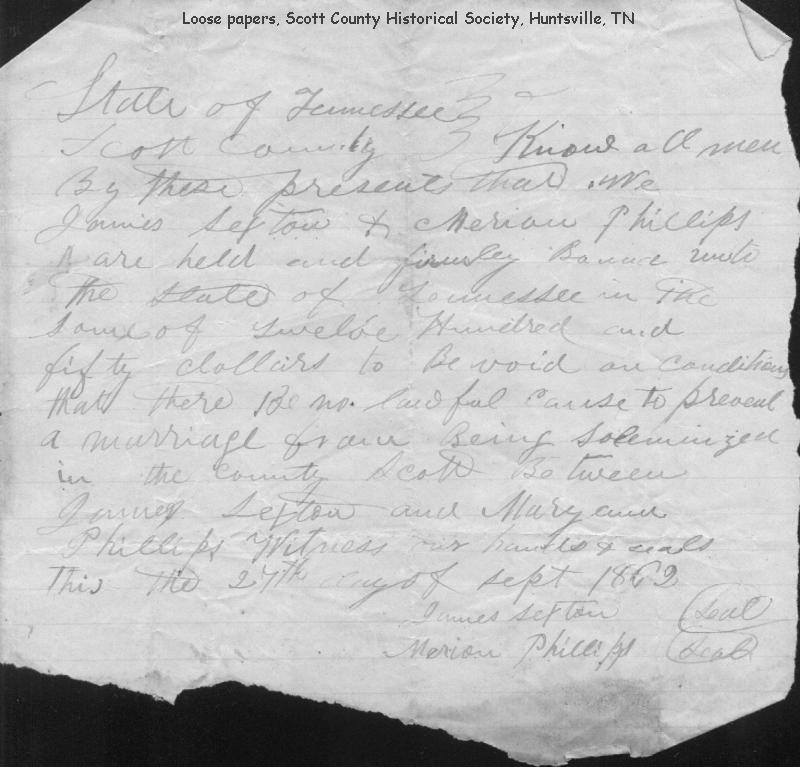 Loose papers, Scott County Historical Society, Huntsville, TN
State of Tennessee
Scott County Know all men
By these presents that we
James Sexton & Merion Phillips
are held and firmley Bound unto
the State of Tennessee in the
some of Twelve Hundred and
fifty dollars to Be void on conditions
that there Be no lawful cause to prevent
a marriage from Being Solemnized
in the county Scott Between
James Sexton and Maryann
Phillips Witness our hands & seals
This the 27th day of Sept 1862
James Sexton (Seal)
Merion Phillips (Seal)